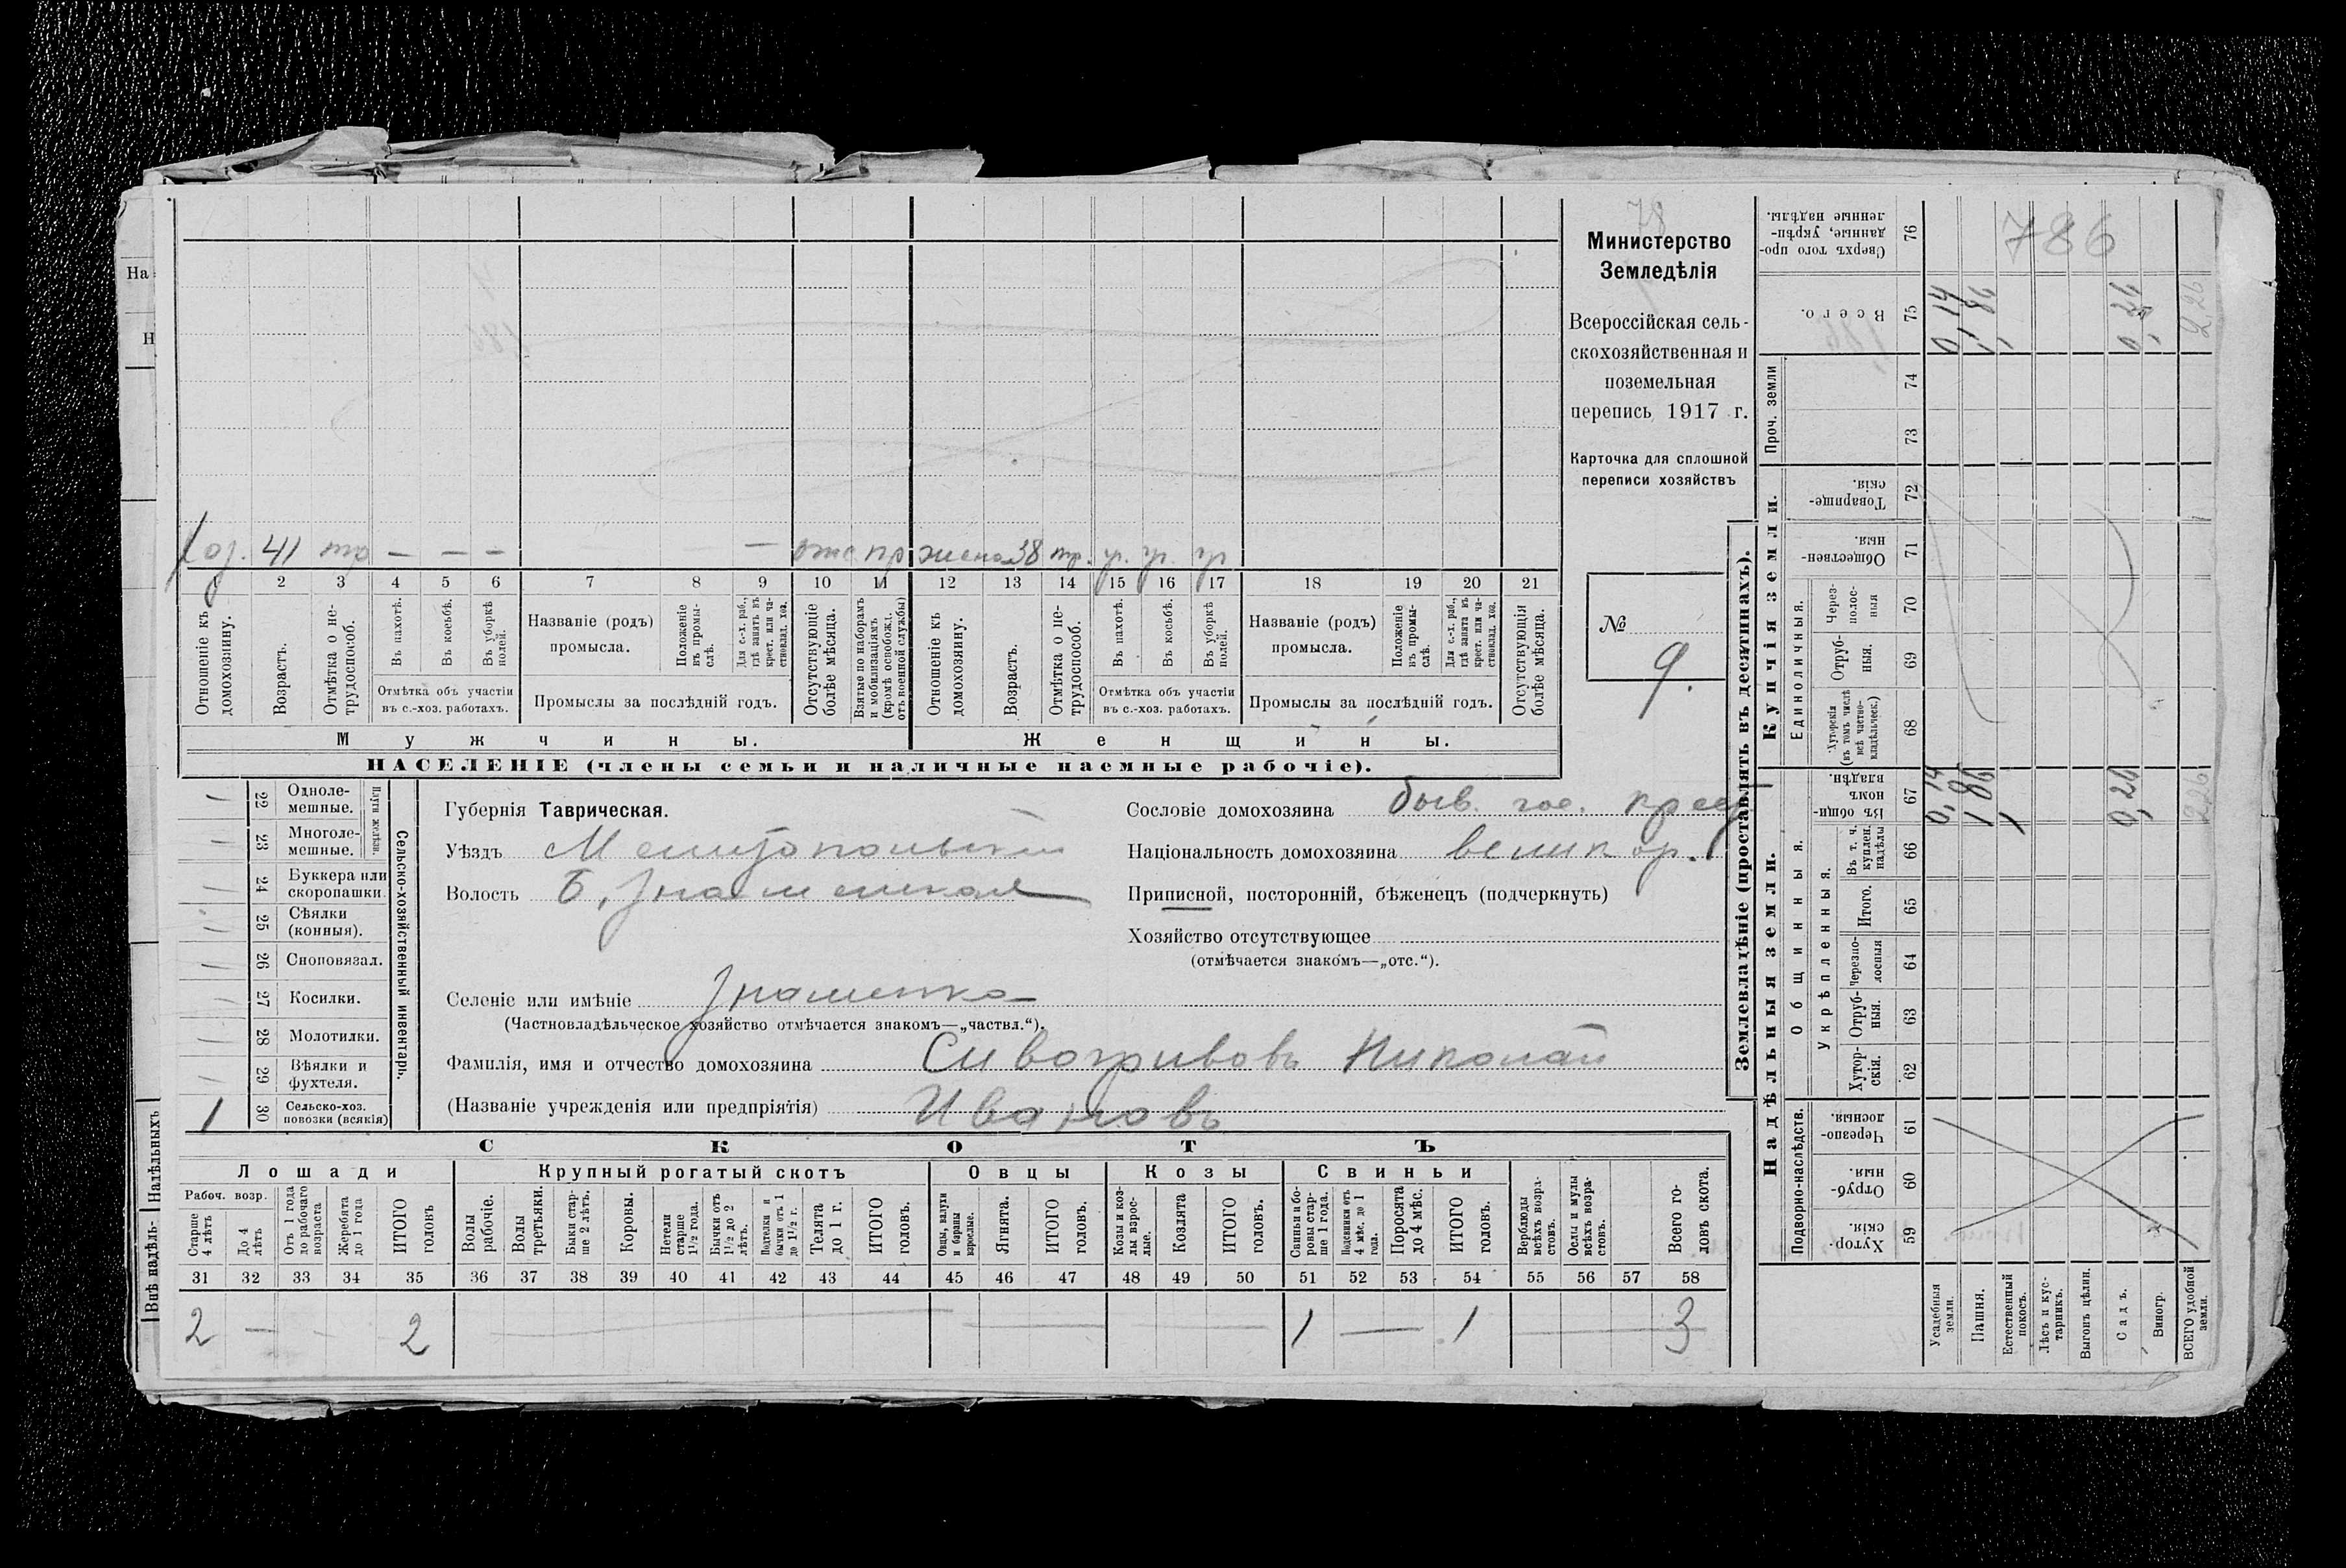 На
Н
Министерство
Земледѣлія
Всероссійская сель-
скохозяйственная и
поземельная
перепись 1917 г.
Карточка для сплошной
переписи хозяйствъ
№
9.
41 — — — — отс жена 38
1 2 3 4 5 6 7 8 9 10 11 12 13 14 15 16 17 18 19 20 21
Отношеніе къ домохозяину.
Возрастъ.
Отмѣтка о не-трудоспособ.
Въ пахотѣ.
Въ косьбѣ.
Въ уборкѣ полей.
Отмѣтка объ участіи
въ с.-хоз. работахъ.
Названіе (родъ)
промысла.
Положеніе въ промы-слѣ.
Для с.-х. раб., гдѣ занятъ въ крест. или ча-стновлад. хоз.
Промыслы за послѣдній годъ.
Отсутствующіе болѣе мѣсяца.
Взятые по наборамъ и мобилизаціямъ (кромѣ освобожд. отъ военной службы)
Отношеніе къ домохозяину.
Возрастъ.
Отмѣтка о не-трудоспособ.
Въ пахотѣ.
Въ косьбѣ.
Въ уборкѣ полей.
Отмѣтка объ участіи
въ с.-хоз. работахъ.
Названіе (родъ)
промысла.
Положеніе въ промы-слѣ.
Для с.-х. раб., гдѣ занята въ крест. или ча-стновлад. хоз.
Промыслы за послѣдній годъ.
Отсутствующія болѣе мѣсяца.
Мужчины. Женщины.
НАСЕЛЕНІЕ (члены семьи и наличные наемные рабочіе).
Сельско-хозяйственный инвентарь.
Плуги желѣзн.
22 Одноле-мешные.
23 Многоле-мешные.
24 Буккера или скоропашки
25 Сѣялки (конныя).
26 Сноповязал.
27 Косилки.
28 Молотилки.
29 Вѣялки и фухтеля.
1 30 Сельско-хоз. повозки (всякія)
Губернія Таврическая.
Уѣздъ Мелитопольскій
Волость Б. Знаменская
Селеніе или имѣніе Знаменка
(Частновладѣльческое хозяйство отмѣчается знакомъ—„частвл.“).
Фамилія, имя и отчество домохозяина Сивогривовъ Николай
(Названіе учрежденія или предпріятія) Ивановъ
Сословіе домохозяина быв. гос. крест
Національность домохозяина великор.
Приписной, посторонній, бѣженецъ (подчеркнуть)
Хозяйство отсутствующее
(отмѣчается знакомъ—„отс.“).
СКОТЪ
Лошади Крупный рогатый скотъ Овцы Козы Свиньи
Рабоч. возр.
Старше 4 лѣтъ
До 4 лѣтъ
Отъ 1 года до рабочаго возраста
Жеребята до 1 года
ИТОГО головъ
Волы рабочіе.
Волы третьяки.
Быки стар-ше 2 лѣтъ.
Коровы.
Нетели старше 1½ года.
Бычки отъ 1½ до 2 лѣтъ.
Подтелки и бычки отъ 1 до 1½ г.
Телята до 1 г.
ИТОГО головъ.
Овцы, валухи и бараны взрослые.
Ягнята.
ИТОГО головъ.
Козы и коз-лы взрос-лые.
Козлята
ИТОГО головъ.
Свиньи и бо-ровы стар-ше 1 года.
Подсвинки отъ 4 мѣс. до 1 года.
Поросята до 4 мѣс.
ИТОГО головъ.
Верблюды всѣхъ возра-стовъ.
Ослы и мулы всѣхъ возра-стовъ.
Всего го-ловъ скота.
31 32 33 34 35 36 37 38 39 40 41 42 43 44 45 46 47 48 49 50 51 52 53 54 55 56 57 58
2 — 2 — — — 1 — 1 — 3
Внѣ надѣль- Надѣльныхъ
Землевладѣніе (проставлять въ десятинахъ).
Надѣльныя земли. Купчія земли.
Подворно-наслѣдств.
Общинныя.
Укрѣпленныя.
Единоличныя.
Проч. земли
59 Хутор-скія.
60 Отруб-ныя.
61 Черезпо-лосныя
62 Хутор-скія.
63 Отруб-ныя.
64 Черезпо-лосныя
65 Итого.
66 Въ т. ч. куплен. надѣлы
67 Въ общин-номъ владѣн.
68 Хуторскія (въ томъ числѣ всѣ частно-владѣльческ.)
69 Отруб-ныя.
70 Через-полос-ныя
71 Обществен-ныя.
72 Товарище-скія.
73
74
75 Всего.
76 Сверхъ того про-данные, укрѣп-ленные надѣлы.
Усадебныя земли.
Пашня.
Естественный покосъ.
Лѣсъ и кус-тарникъ.
Выгонъ цѣлин.
Садъ.
Виногр.
ВСЕГО удобной земли.
0,14 1,86 0,26 2,26
0,14 1,86 0,26 2,26
786